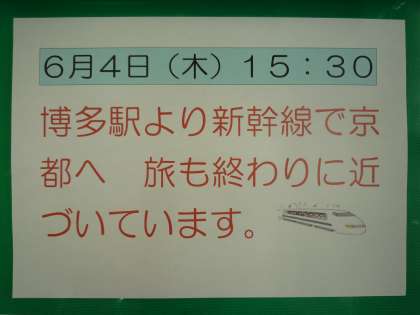 ６月４日（木）１５：３０
博多駅より新幹線で京
都へ　旅も終わりに近
づいています。